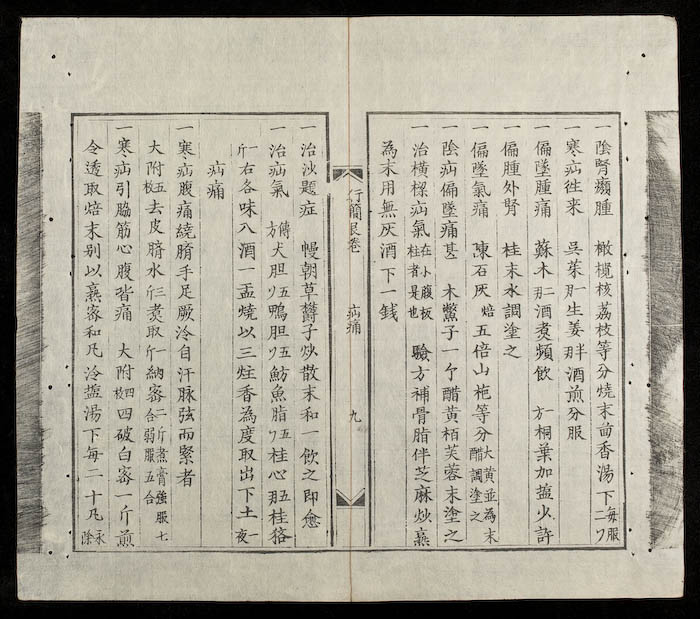 一陰腎癩腫　橄欖核荔枝等分燒末茴香湯下每服二リ
一寒疝徃来　吳茱 一生姜 酒煎分服
一偏墜腫痛　蘇木 二酒煑頻飲　一方桐葉加盐少許
一偏腫外腎　桂末水調塗之
一偏墜氣痛　陳石灰焙五倍山栀等分大黄並為末醋調塗之
一陰疝偏墜痛甚　木鱉子一个醋黄栢芙蓉末塗之
一治横樑疝氣在小腹板柱者是也　驗方補骨脂伴芝麻炒
為末用無灰酒下一錢
行簡艮卷　疝痛　九
一治沙題症　幔朝草欝子炒散末和一飲之即愈
一治疝氣傳方犬胆五リ鴨胆五リ魴魚脂五リ桂心 五桂
一斤右各味入酒一盂燒以三炷香為度取出下土一夜
疝痛
一寒疝腹痛繞臍手足厥冷自汗脉弦而緊者
大附五枚去皮臍水三斤煑取一斤納蜜二斤煮膏強服七合弱服五合
一寒疝引脇筋心腹皆痛　大附四枚四破白蜜一斤煎
令透取焙末别以 蜜和凡冷盐湯下每二十凡永除